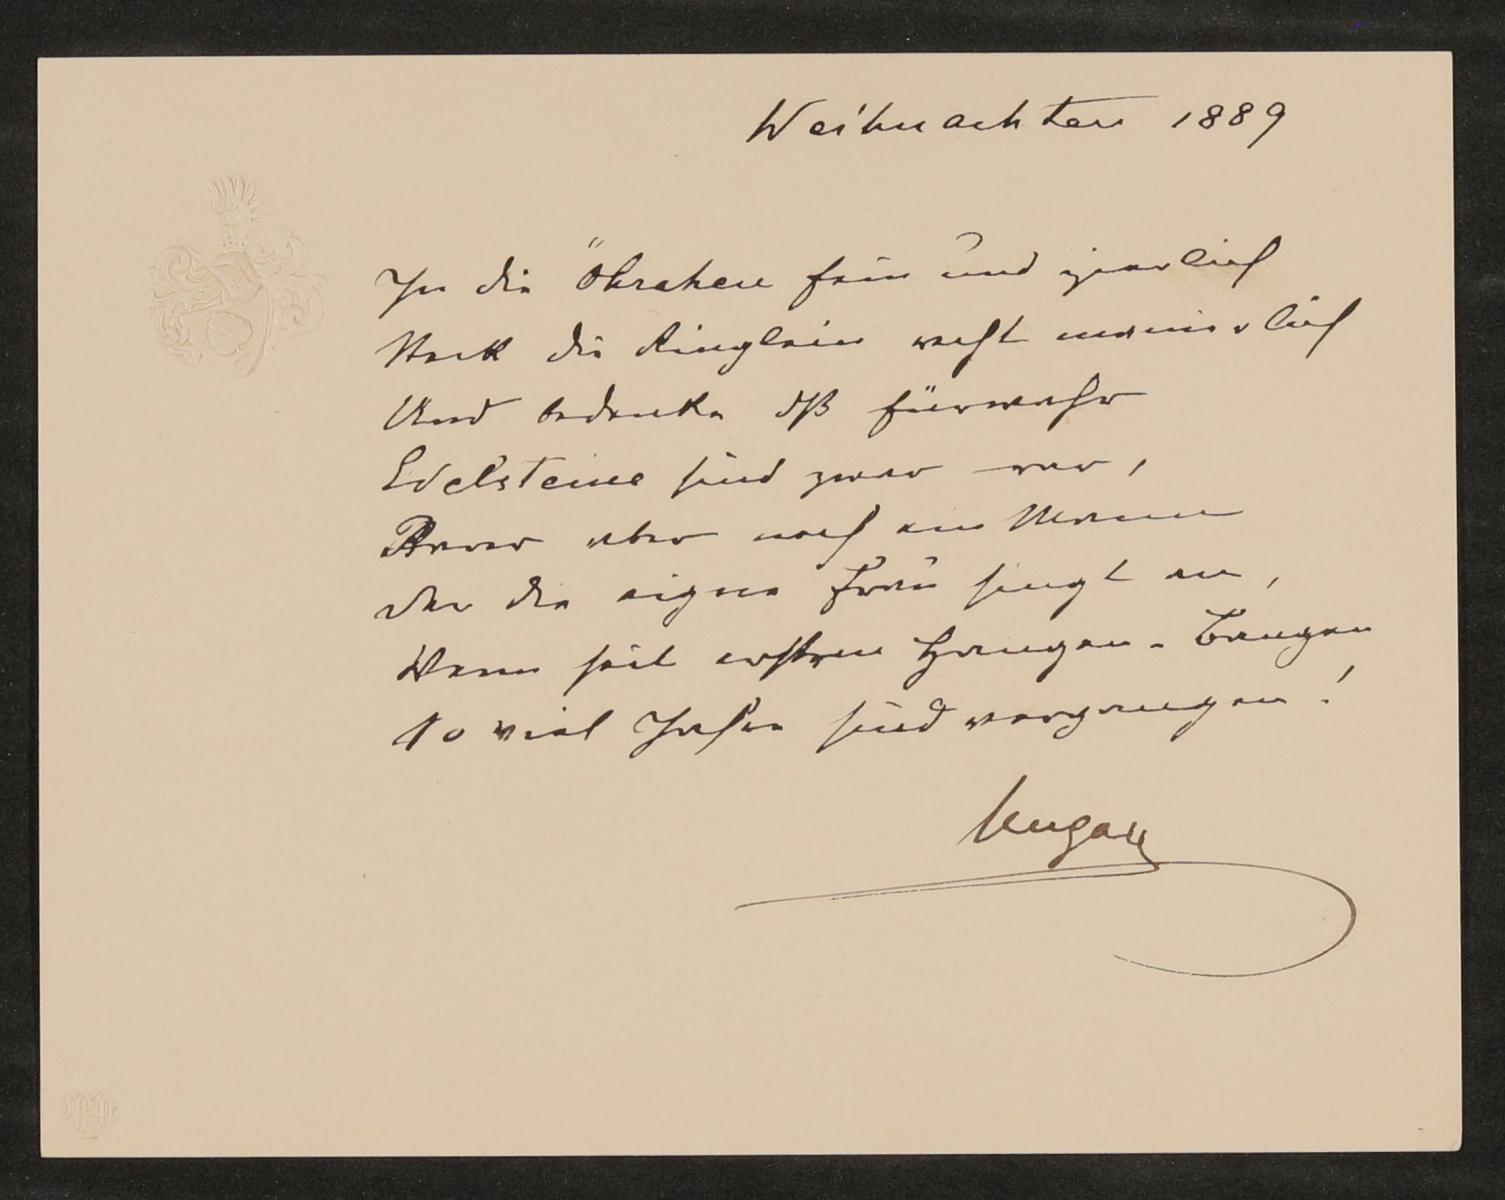 Weihnachten 1889
In die Öhrchen fein und zierlich
Steck die Ringlein recht manierlich
Und bedenke dß fürwahr
Edelsteine sind zwar rar,
Rarer aber noch ein Mann
Der die eigne Frau singt an,
Wenn seit erstem Hangen - Bangen
So viel Jahre sind vergangen!